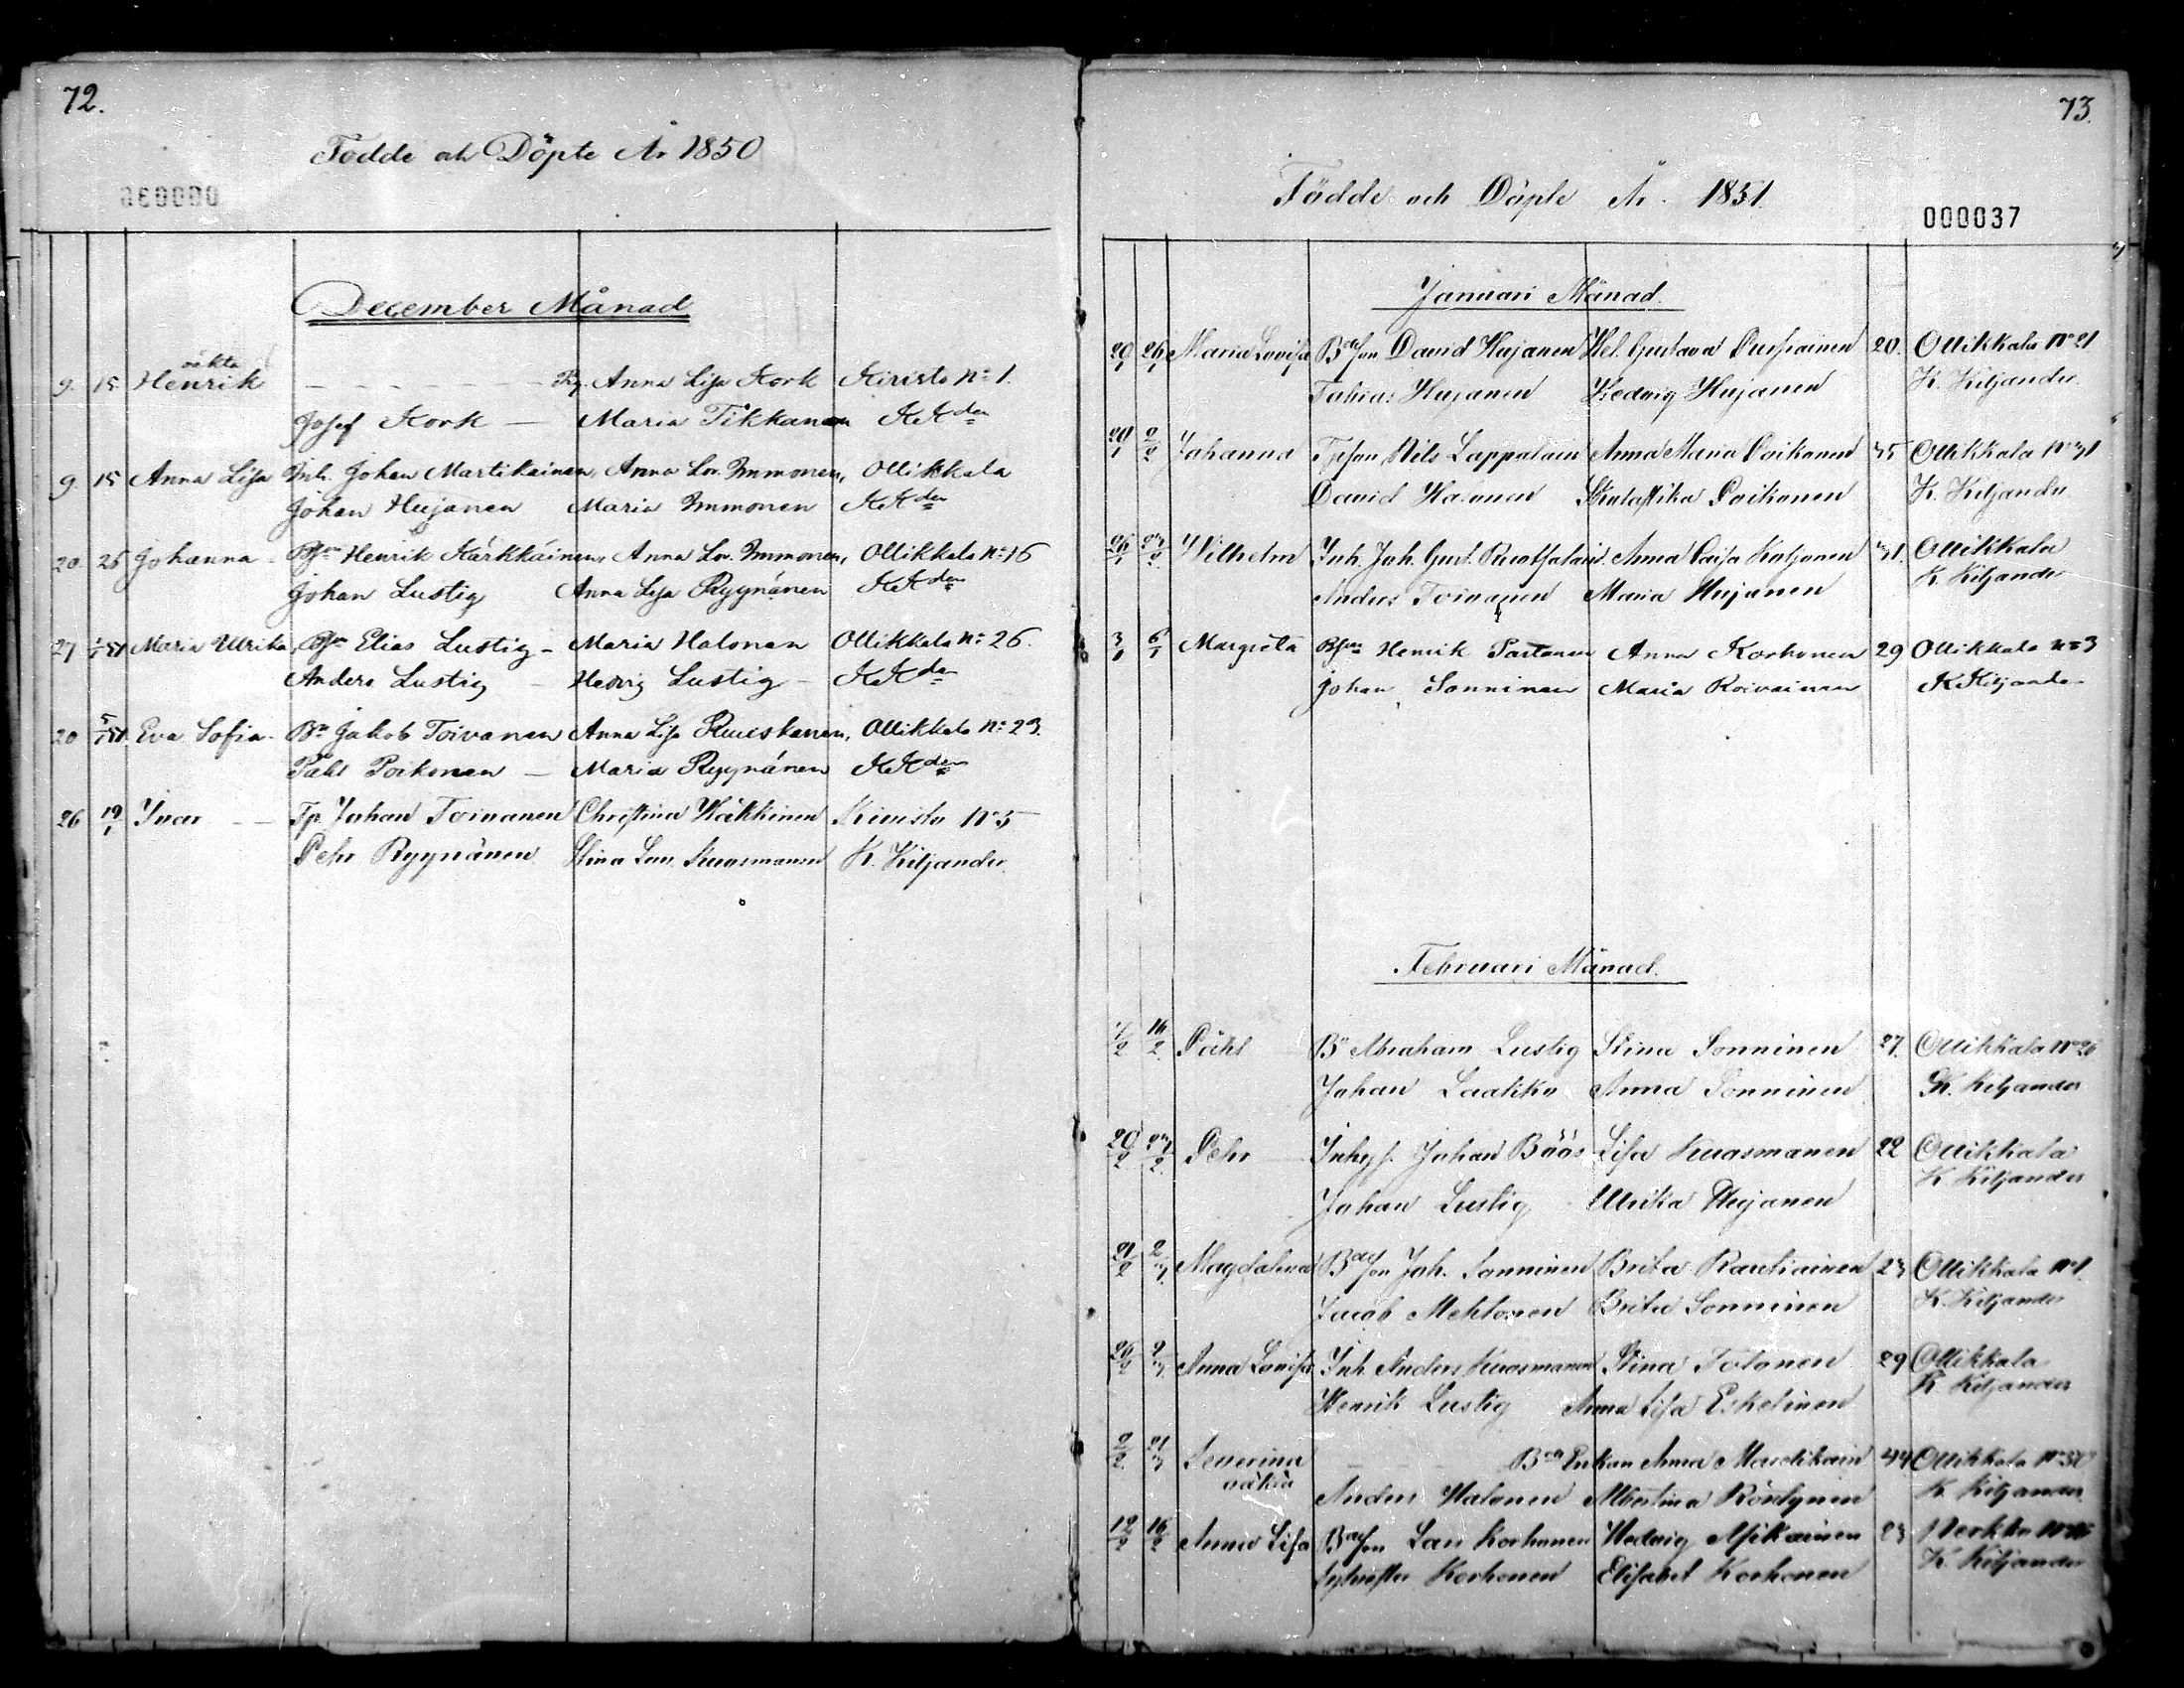 72.
Födde och Döpte År 1850
000036
December Månad
oäkta
9. 15 Henrik — Pig. Anna Lisa Kork Kivisto No 1.
Josef Kork — Maria Tikkanen K Kden
9. 15 Anna Lisa Inh. Johan Martikainen, Anna Lov. Immonen, Ollikkala
Johan Hujanen Maria Immonen K Kden
20. 26 Johanna - Bson Henrik Kärkkäinen, Anna Lov. Immonen, Ollikkala No 16
Johan Lustig Anna Lisa Ryynänen K Kden
27 1/1 51 Maria Ulrika, Bson Elias Lustig - Maria Halonen Ollikkala No 26.
Anders Lustig — Hedvig Lustig - K Kden
20 5/1 51. Eva Sofia - Bn Jakob Toivanen Anna Lisa Ruuskanen, Ollikkala No 23.
Påhl Poikonen — Maria Ryynänen K Kden
26 19/1 Ivar — Tp. Johan Toivanen Christina Häkkinen Kivisto No 5
Pehr Ryynänen Stina Lov. Kuosmanen K. Kiljander.
73.
Födde och Döpte År 1851.
000037
Januari Månad.
20/1 26/1 Maria Lovisa Bdeson David Hujanen Hel. Gustava 20. Ollikkala No 21
Tobias Hujanen Hedvig Hujanen K. Kiljander.
20/1 2/2 Johanna Nils Lappalain Anna Maria Poikonen 35 Ollikkala No 31
David Halonen Skolastika Poikonen K. Kiljander
26/1 Wilhelm Inh. Joh. Gust. Anna Caisa 31. Ollikkala
Anders Toivanen Maria Hujanen K. Kiljander
3/1 6/1 Margreta Bson Henrik Partanen Anna Korhonen 29 Ollikkala No 3
Johan Sonninen Maria Roivainen K Kiljander
Februari Månad.
16/2 Påhl Bn Abraham Lustig Stina Sonninen 27. Ollikkala No 26
Johan Laakko Anna Sonninen K. Kiljander
20/2 23/2 Pehr Inhys. Johan Böös Lisa Kuosmanen 22 Ollikkala
Johan Lustig Ulrika Hujanen K. Kiljander
21/2 2/3 Magdalena Bdeson Joh. Sonninen Brita Rautiainen 23 Ollikkala No 1.
Jacob Mehtonen Brita Sonninen K. Kiljander
26/2 2/3 Anna Lovisa Inh. Anders Kuosmanen Stina Tolonen 29 Ollikkala
Henrik Lustig Anna Lisa Eskelinen K. Kiljander
2/2 21/3 Severina Bde Enkan Anna Martikain 44 Ollikkala No 30
oäkta
Anders Halonen Albertina K. Kiljander
12/2 16/2 Anna Lisa Bdeson Lars Korhonen Hedvig Asikainen 23
Sylvester Korhonen Elisabet Korhonen K. Kiljander